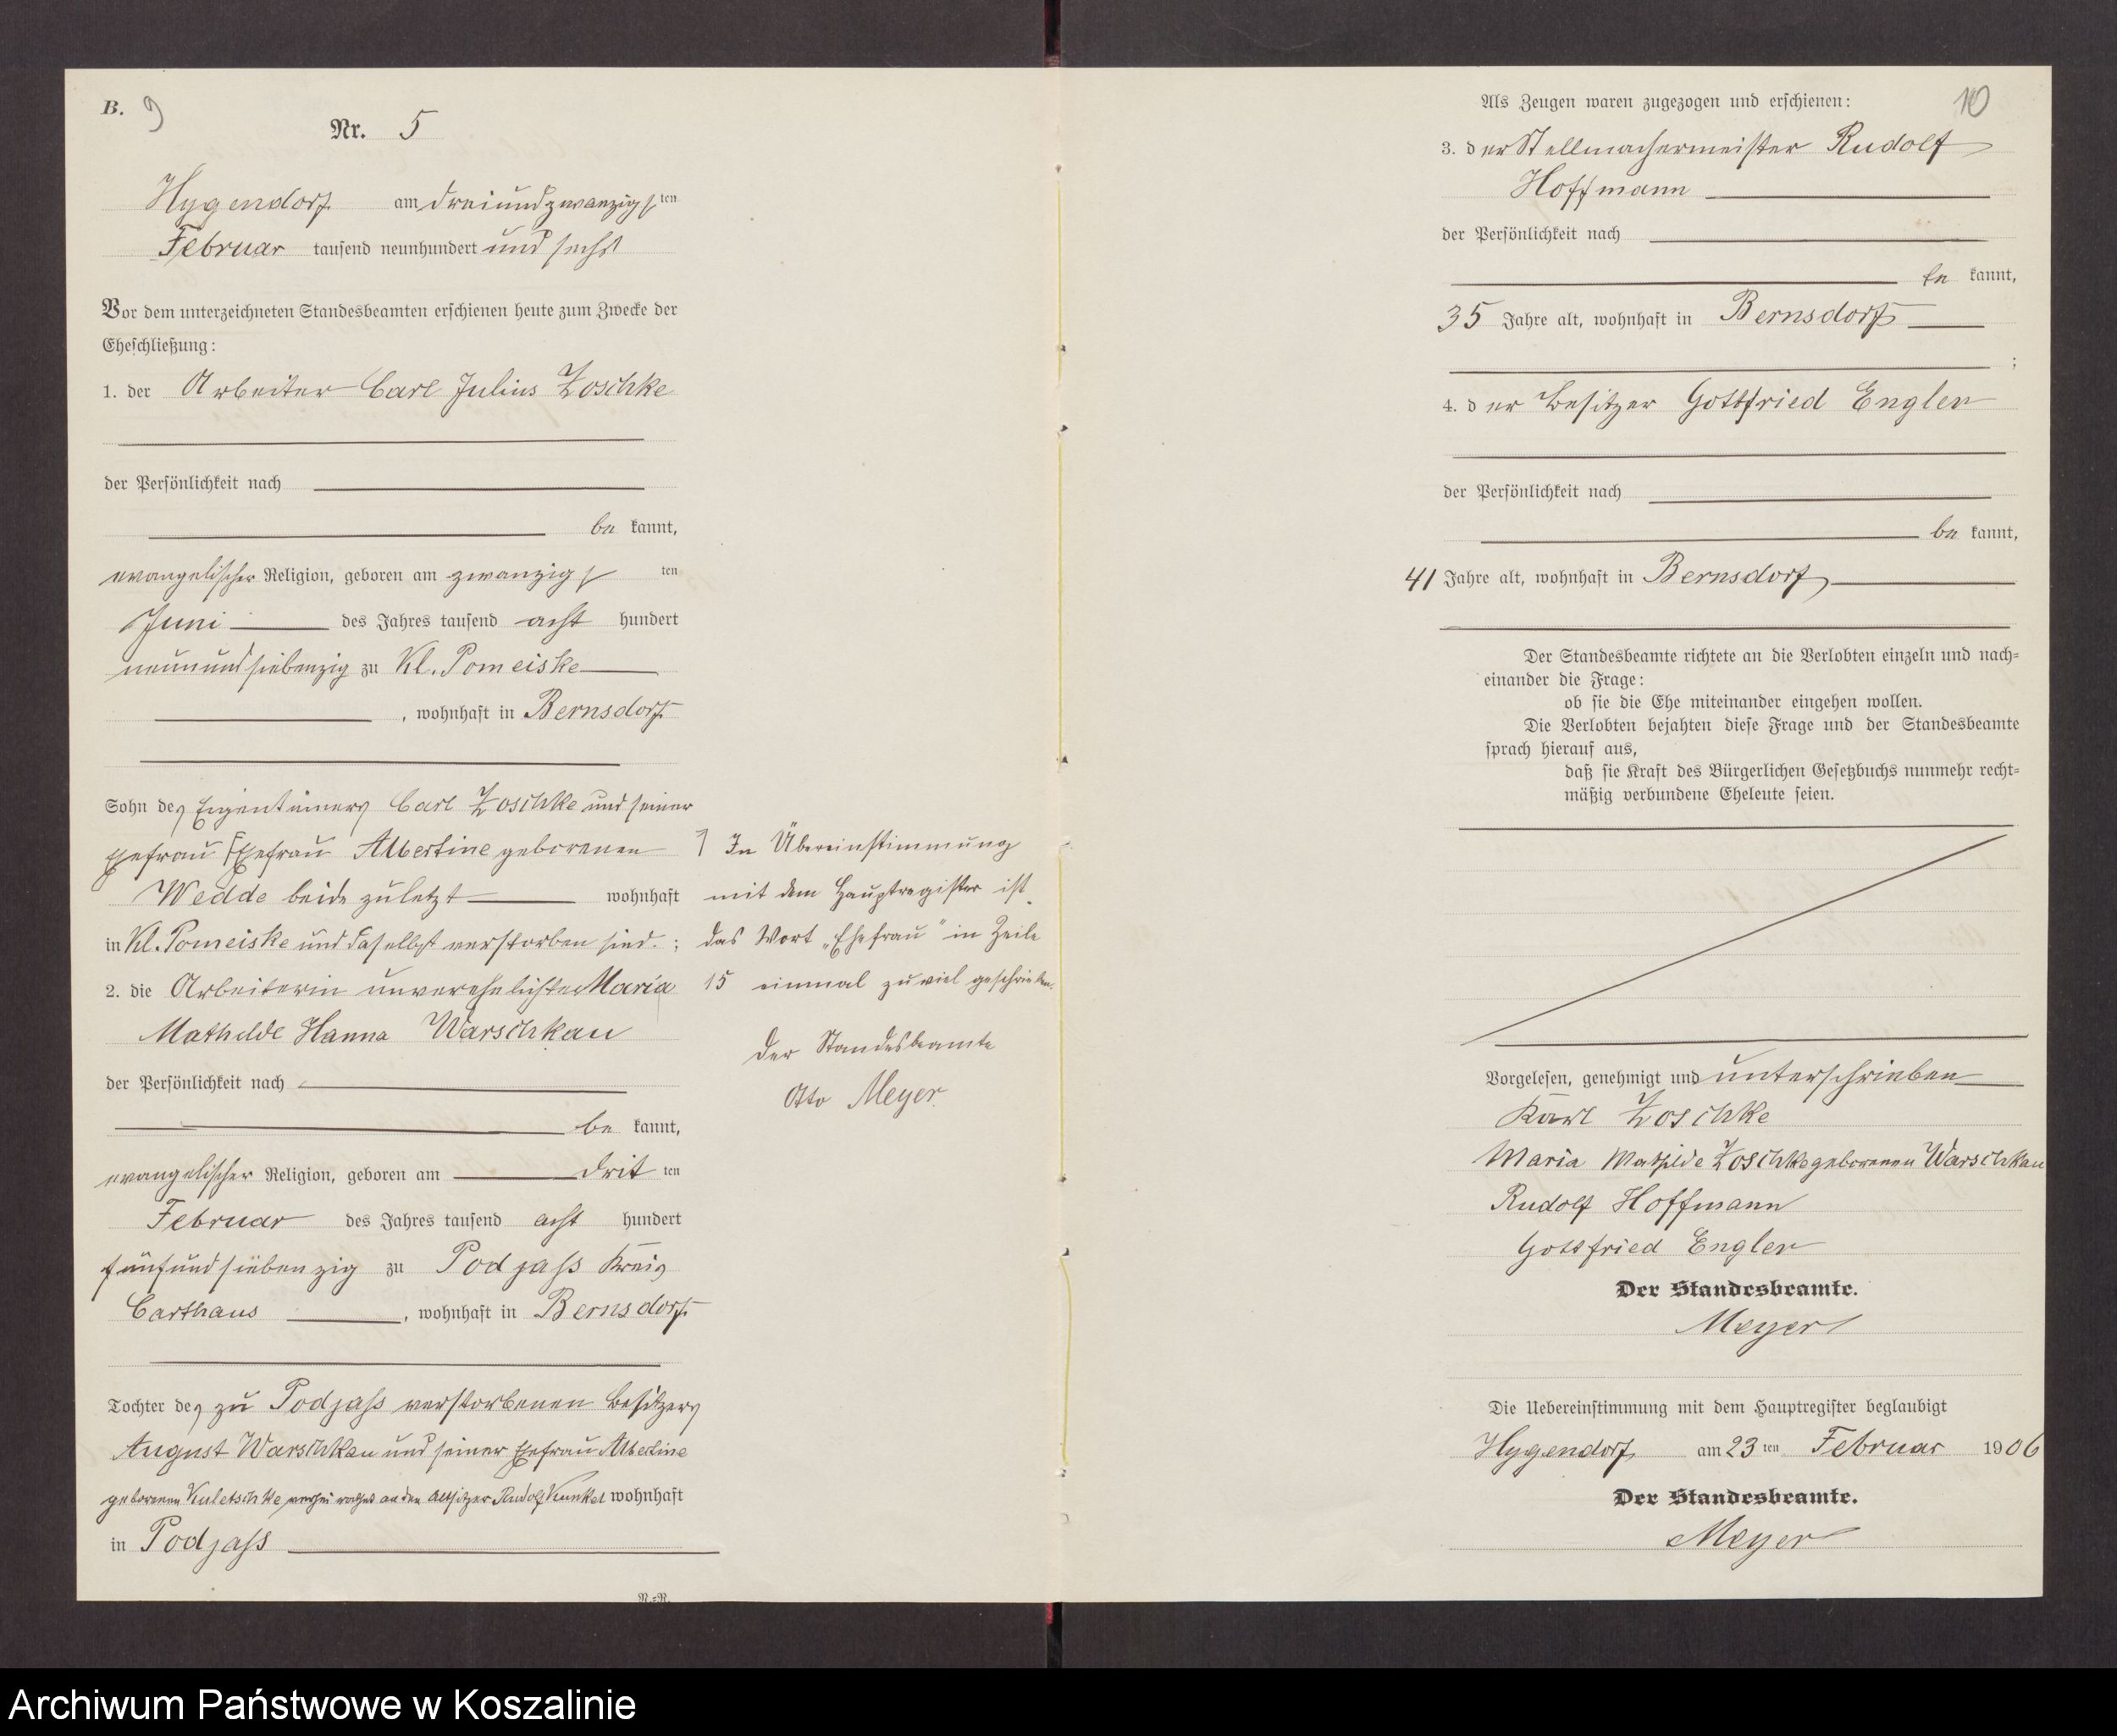 B.
9
Nr. 5
Hygendorf am dreiundzwanzigsten
Februar tausend neunhundert und sechs
Vor dem unterzeichneten Standesbeamten erschienen heute zum Zwecke der
Eheschließung:
1. der Arbeiter Carl Julius Zoschke
der Persönlichkeit nach
be kannt,
evangelischer Religion, geboren am zwanzigsten
Juni des Jahres tausend acht hundert
neunundsiebenzig zu Kl. Pomeiske
, wohnhaft in Bernsdorf
Sohn des Eigentümers Carl Zoschke und seiner
Ehefrau Ehefrau Albertine geborenen
Wedde beide zuletzt wohnhaft
in Kl. Pomeiske und daselbst verstorben sind. ;
2. die Arbeiterin unverehelichte Maria
Mathilde Hanna Warschkau
der Persönlichkeit nach
be kannt,
evangelischer Religion, geboren am dritten
Februar des Jahres tausend acht hundert
fünfundsiebenzig zu Podjass Kreis
Carthaus , wohnhaft in Bernsdorf
Tochter des zu Podjass verstorbenen Besitzers
August Warschkau und seiner Ehefrau Albertine
geborenen Kuletschke an den Altsitzer Rudolf Kunkel wohnhaft
in Podjass
N.-R.
In Übereinstimmung
mit dem Hauptregister ist
das Wort „Ehefrau" in Zeile
15 einmal zuviel geschrieben.
Der Standesbeamte
Otto Meyer
10
Als Zeugen waren zugezogen und erschienen:
3. der Stellmachermeister Rudolf
Hoffmann
der Persönlichkeit nach
be kannt,
35 Jahre alt, wohnhaft in Bernsdorf
;
4. der Besitzer Gottfried Engler
der Persönlichkeit nach
be kannt,
41 Jahre alt, wohnhaft in Bernsdorf
Der Standesbeamte richtete an die Verlobten einzeln und nach-
einander die Frage:
ob sie die Ehe miteinander eingehen wollen.
Die Verlobten bejahten diese Frage und der Standesbeamte
sprach hierauf aus,
daß sie Kraft des Bürgerlichen Gesetzbuchs nunmehr recht-
mäßig verbundene Eheleute seien.
Vorgelesen, genehmigt und unterschrieben
Karl Zoschke
Maria Mathilde Zoschke geborenen Warschkau
Rudolf Hoffmann
Gottfried Engler
Der Standesbeamte.
Meyer
Die Uebereinstimmung mit dem Hauptregister beglaubigt
Hygendorf am 23 ten Februar 1906
Der Standesbeamte.
Meyer
Archiwum Państwowe w Koszalinie